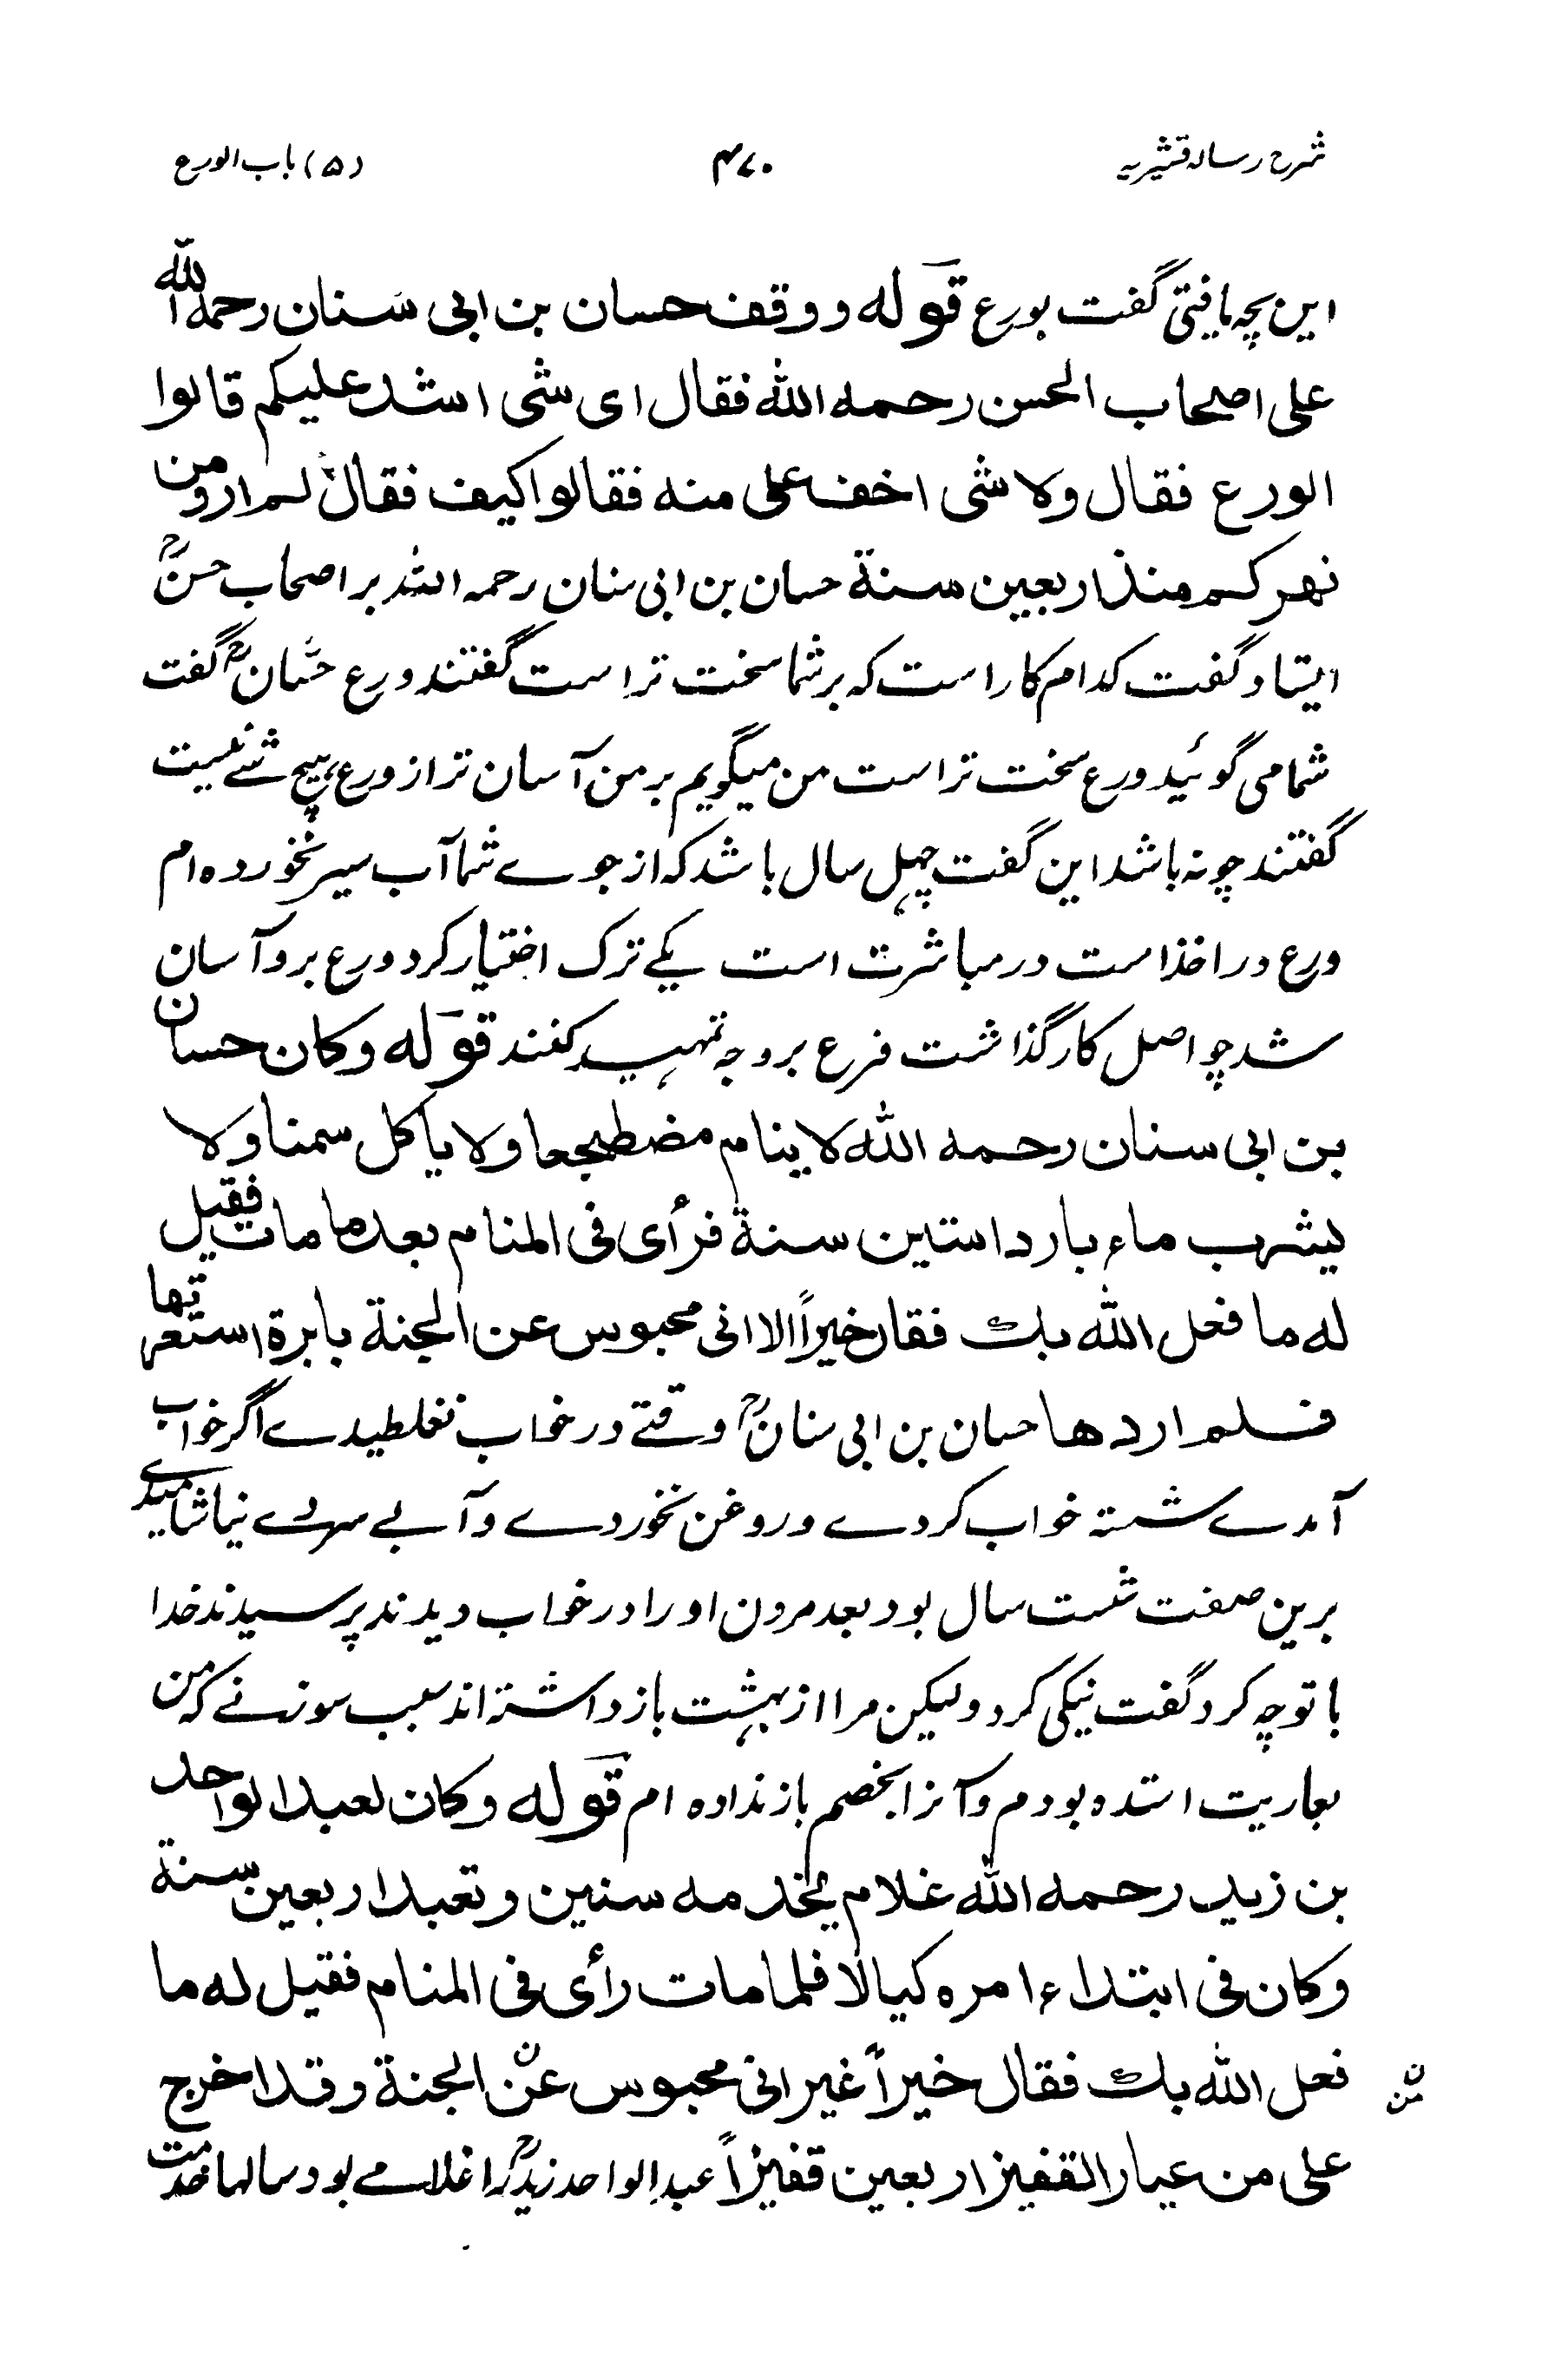 شرح رسالہ قشیریہ ۴۷۰ (۵) باب الورع
این بچہ یافتی گفت بورع قولہ ووقف حسان بن ابی سنان رحمہ اللہ
علی اصحاب الحسن رحمہ اللہ فقال ای شی اشد علیکم قالوا
الورع فقال ولا شی اخف علی منہ فقالوا کیف فقال لم ارو من
نھرکم منذ اربعین سنة حسان بن ابی سنان رحمہ اللہ بر اصحاب حسنؒ
ایستاد گفت کدام کار است کہ بر شما سخت تر است گفتند ورع حسّانؒ گفت
شما می گوئید ورع سخت تر است من میگویم بر من آسان تر از ورع ہیچ شئے نیست
گفتند چونہ باشد این گفت چہل سال باشد کہ از جوے شما آب سیر نخوردہ ام
ورع در اخذ است در مباشرت است یکے ترک اختیار کرد ورع برو آسان
شد چو اصل کار گذاشت فرع بر وجہ تمہید کنند قولہ وکان حسان
بن ابی سنان رحمہ اللہ لا ینام مضطجعا ولا یاکل سمنا ولا
یشرب ماء باردا ستین سنة فرأی فی المنام بعد ما مات فقیل
لہ ما فعل اللہ بک فقال خیراً الا انی محبوس عن الجنة بابرة استعرتھا
فلم اردھا حسان بن ابی سنانؒ وقتے در خواب نغلطیدے اگر خواب
آمدے نشستہ خواب کردے و روغن نخوردے و آبے سردے نیاشامیدے
برین صفت شست سال بود بعد مردن او را در خواب دیدند پرسیدند خدا
با تو چہ کرد گفت نیکی کرد ولیکن مرا از بہشت باز داشتہ اند سبب سوزنے کہ من
بعاریت استدہ بودم و آنرا بخصم باز ندادہ ام قولہ وکان لعبد الواحد
بن زید رحمہ اللہ غلام یخدمہ سنین وتعبد اربعین سنة
وکان فی ابتداء امرہ کیالا فلما مات رأی فی المنام فقیل لہ ما
فعل اللہ بک فقال خیراً غیر انی محبوس عن الجنة وقد اخرج
ن من
علی من عیار القفیز اربعین قفیزاً عبد الواحد زیدؒ را غلامے بود سالہا خدمت